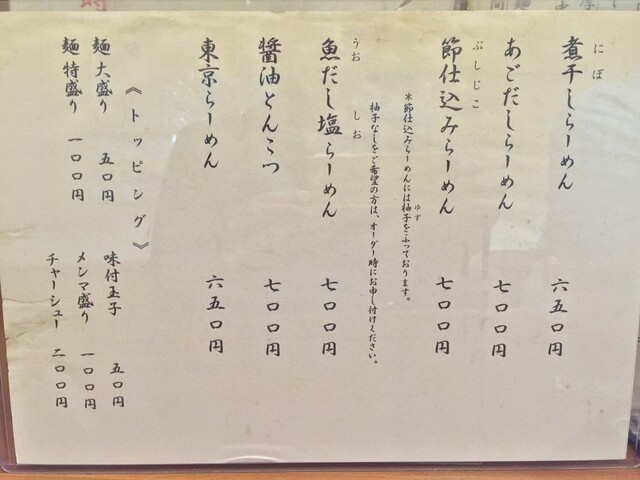 煮干しらーめん 六五〇円
にぼ
あごだしらーめん 七〇〇円
節仕込みらーめん 七〇〇円
ぶしじこ
*節仕込みらーめんには柚子をふっております。
ゆず
柚子なしをご希望の方は、オーダー時にお申し付けください。
魚だし塩らーめん 七〇〇円
うお しお
醤油とんこつ 七〇〇円
東京らーめん 六五〇円
《トッピング》
麺大盛り 五〇円
麺特盛り 一〇〇円
味付玉子 五〇円
メンマ盛り 一〇〇円
チャーシュー 二〇〇円